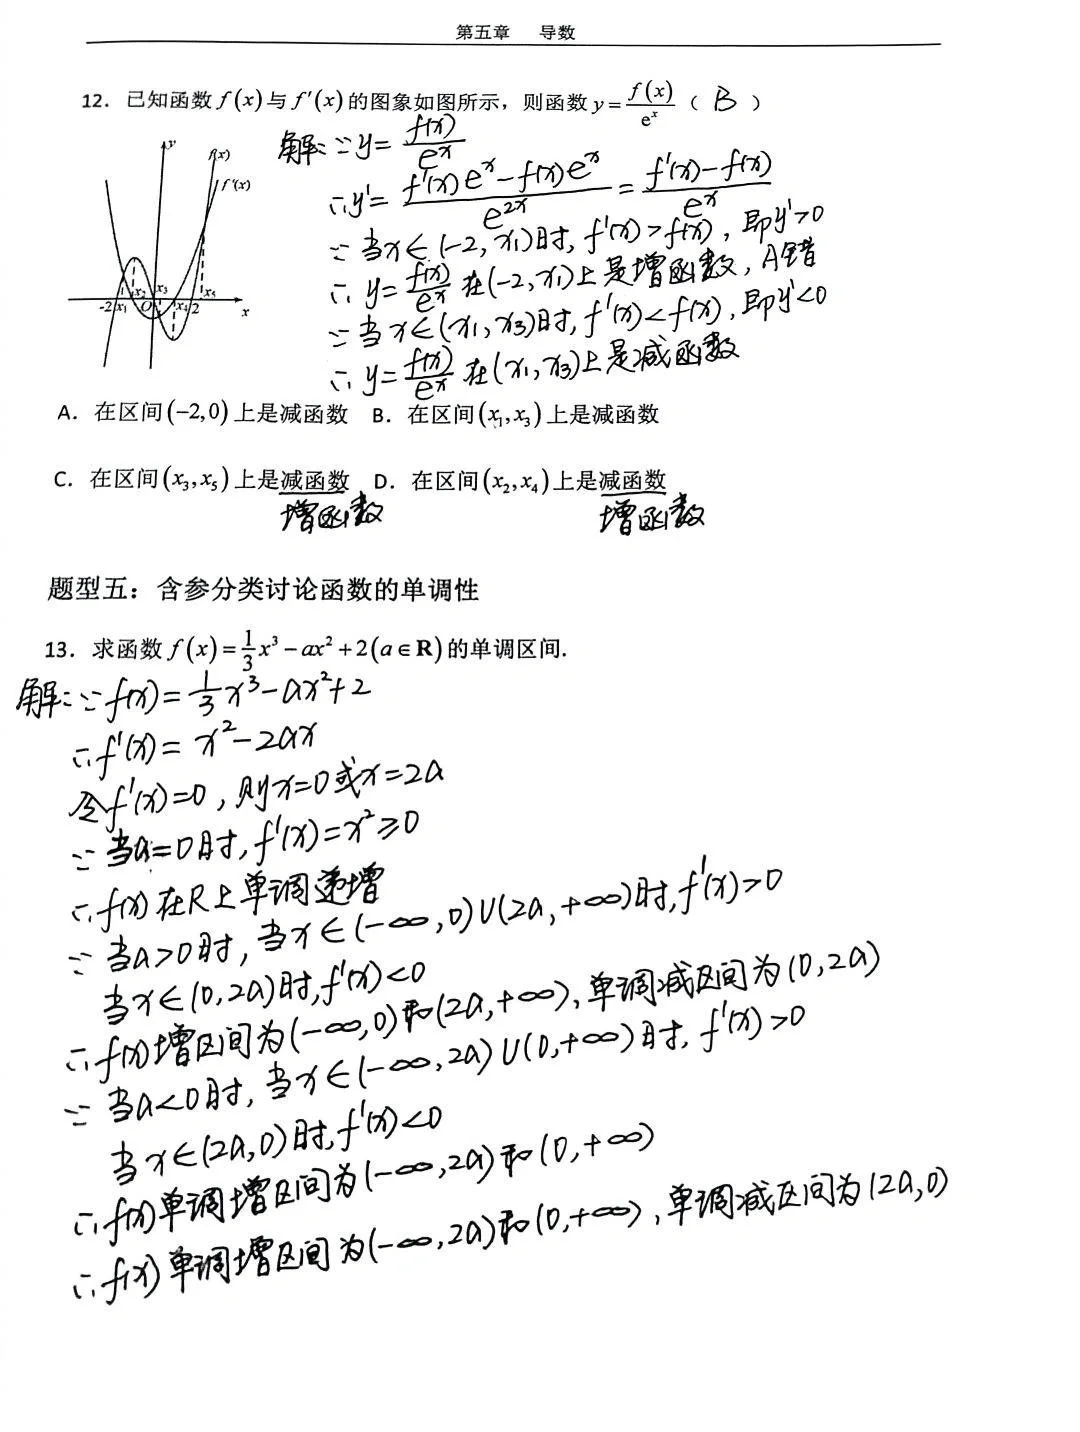 第五章 导数
12. 已知函数 f(x) 与 f′(x) 的图象如图所示，则函数 y=f(x)/eˣ（ B ）
解: ∵y=f(x)/eˣ
∴y'=(f'(x)eˣ-f(x)eˣ)/e²ˣ=(f'(x)-f(x))/eˣ
∵当x∈(-2,x₁)时,f'(x)>f(x),即y'>0
∴y=f(x)/eˣ在(-2,x₁)上是增函数,A错
∵当x∈(x₁,x₃)时,f'(x)<f(x),即y'<0
∴y=f(x)/eˣ在(x₁,x₃)上是减函数
y
f(x)
f′(x)
-2 x₁ x₂ O x₃ x₄ 2 x₅ x
1
A. 在区间(-2,0)上是减函数 B. 在区间(x₁,x₃)上是减函数
C. 在区间(x₃,x₅)上是减函数 D. 在区间(x₂,x₄)上是减函数
增函数 增函数
题型五：含参分类讨论函数的单调性
13. 求函数 f(x)=1/3x³-ax²+2(a∈R)的单调区间.
解: ∵f(x)=1/3x³-ax²+2
∴f'(x)=x²-2ax
令f'(x)=0,则x=0或x=2a
∵当a=0时,f'(x)=x²≥0
∴f(x)在R上单调递增
∵当a>0时,当x∈(-∞,0)∪(2a,+∞)时,f'(x)>0
当x∈(0,2a)时,f'(x)<0
∴f(x)增区间为(-∞,0)和(2a,+∞),单调减区间为(0,2a)
∵当a<0时,当x∈(-∞,2a)∪(0,+∞)时,f'(x)>0
当x∈(2a,0)时,f'(x)<0
∴f(x)单调增区间为(-∞,2a)和(0,+∞)
∴f(x)单调增区间为(-∞,2a)和(0,+∞),单调减区间为(2a,0)